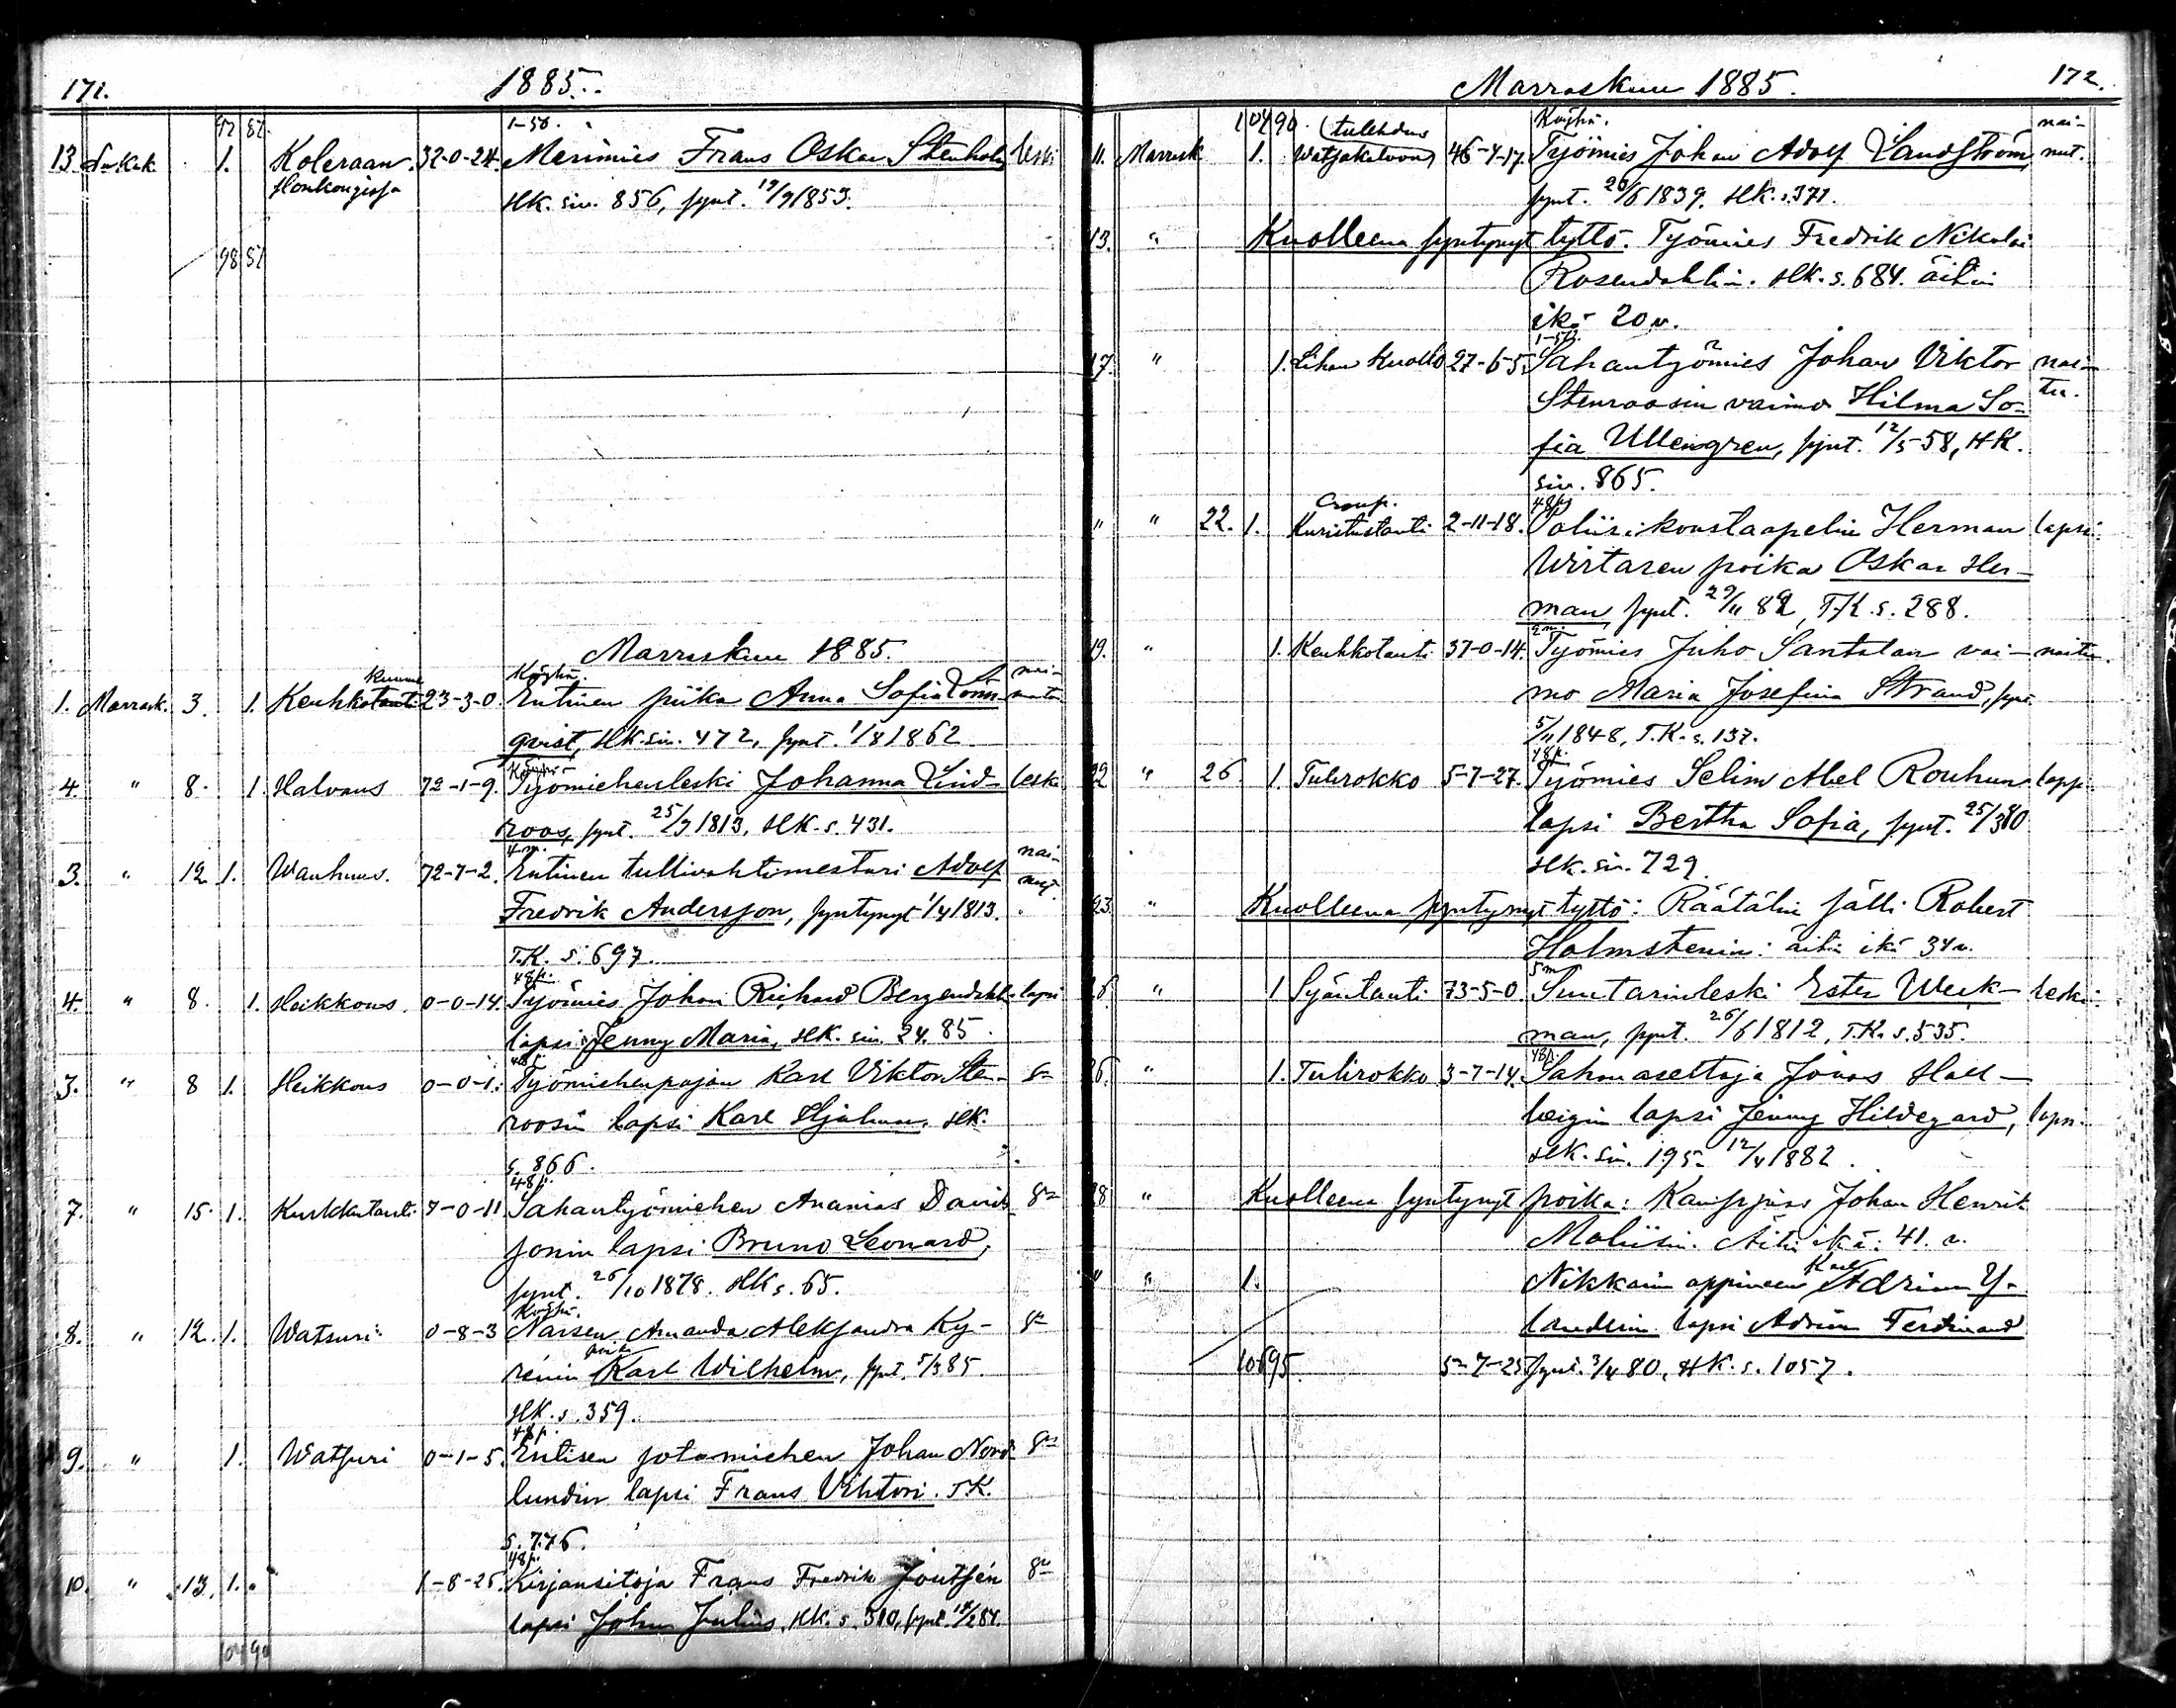 171. 1885.
97 82. 1-58.
13. Lokak. 1. Koleraan. 32-0-24. Merimies Frans Oskar Stenholm leski
Honkongissa HK. siv. 856, synt. 19/9 1853.
98 82
Marraskuu 1885.
Kuume Köyhä. nai-
1. Marrask. 3. 1. Keuhkotauti 23-3-0. Entinen piika Anna Sofia Lönn- maton
qvist, HK. siv. 472, synt. 1/8 1862
Köyhä
4. " 8. 1. Halvaus 72-1-9. Työmiehenleski Johanna Lind- leski
roos, synt. 25/9 1813, HK. s. 431.
4 m. nai-
3. " 12 1. Wanhuus. 72-7-2. Entinen tullivahtimestari Adolf nut.
Fredrik Andersson, syntynyt 1/4 1813.
T.K. s. 697.
48 p.
4. " 8. 1. Heikkous. 0-0-14. Työmies Johan Richard Bergendahl lapsi
lapsi Jenny Maria, HK. siv. 24. 85.
48 p.
3. " 8 1. Heikkous 0-0-1. Työmiehenpojan Karl Viktor Sten- sn
roosin lapsi Karl Hjalmar. HK.
s. 866.
48 p.
7. " 15. 1. Kurkkutauti 7-0-11 Sahantyömiehen Ananias David- sn
sonin lapsi Bruno Leonard,
synt. 26/10 1878. HK s. 65.
Köyhä.
8. " 12. 1. Watsuri 0-8-3 Naisen Amanda Aleksandra Ky- sn
poika
renin Karl Wilhelm, synt. 5/3 85.
HK. s. 359.
48 p.
9. " 1. Watsuri 0-1-5. Entisen sotamiehen Johan Nord- sn
lundin lapsi Frans Vihtori. T.K.
s. 776.
48 p.
10. " 13. 1. 1-8-25. Kirjansitoja Frans Fredrik Joutsén sn
lapsi Johan Julius, HK. s. 310, synt. 15/2 84.
104 90
Marraskuu 1885. 172.
104 90. (tulehdus Köyhä. nai-
11. Marrask 1. Watsakalvon) 46-4-17. Työmies Johan Adolf Sandström, nut.
synt. 20/6 1839. HK. s. 371.
13. " Kuolleena syntynyt tyttö. Työmies Fredrik Nikolai
Rosendahlin. HK. s. 684. äitin
ikä 20 v.
17. " 1. Lihan kuolio 27-6-5. Sahantyömies Johan Viktor nai-
Stenroosin vaimo Hilma So- tu.
fia Ullengren, synt. 12/5-58, HK.
siv. 865.
Croup. 48 p
" " 22. 1. Kuristustauti 2-11-18. Poliisikonstaapelin Herman lapsi
Wirtasen poika Oskar Her-
man, synt. 29/11 82, T.K. s. 288.
2 m.
19. " 1. Keuhkotauti 37-0-14. Työmies Juho Santalan vai- naitu.
mo Maria Josefina Strand, synt.
5/11 1848, T.K. s. 137.
48 p.
22 " 26. 1. Tulirokko 5-7-27. Työmies Selim Abel Rouhun lapsi
lapsi Bertha Sofia, synt. 25/3 80
HK. siv. 729.
23. " Kuolleena syntynyt tyttö: Räätälin sälli Robert
Holmstenin: äitin ikä 34 v.
5 m
26. " 1 Sydäntauti 73-5-0 Suutarinleski Ester Weck- leski.
man, synt. 26/6 1812, T.K. s. 535.
48 p.
26. " 1. Tulirokko 3-7-14. Sahanasettaja Jonas Hall-
bergin lapsi Jenny Hildegard, lapsi.
HK. siv. 195. 12/4 1882.
28 " Kuolleena syntynyt poika: Kauppias Johan Henrik
Moliisin. Äitin ikä: 41. v.
Karl
" " 1. Nikkarin oppineen Adrian Y-
landerin lapsi Adrian Ferdinand
108 95. 5-7-25 synt. 3/4 80, HK. s. 1057.